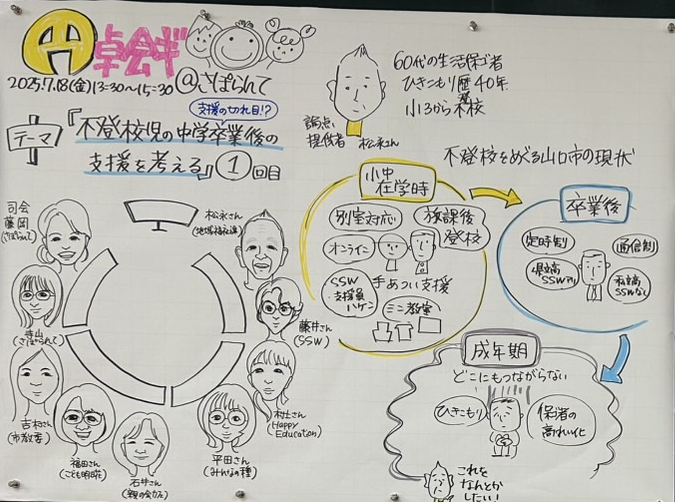 円卓会ギ
2025.7.18(金)13:30〜15:30@さぽらんて
支援の切れ目!?
テーマ
『不登校児の中学卒業後の
支援を考える』①回目
論点
提供者 松永さん
60代の生活保ゴ者
ひきこもり歴40年
小3から不登校
不登校をめぐる山口市の現状
小中
在学時
別室対応
放課後
登校
オンライン
手あつい支援
SSW
・支援員
ハケン
ミニ教室
卒業後
定時制
通信制
県立高
SSWアリ
私立高
SSWなし
成年期
どこにもつながらない
ひきこもり
保ゴ者の
高れい化
これを
なんとか
したい!
司会
藤岡
(さぽらんて)
松永さん
藤井さん
(SSW)
村上さん
(Happy
Education)
平田さん
(みんなの種)
石井さん
福田さん
吉村さん
(市教委)
(さぽらんて)